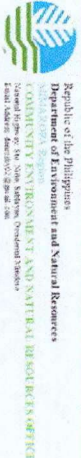 Republic of the Philippines
Department of Environment and Natural Resources
MIMAROPA Region
COMMUNITY ENVIRONMENT AND NATURAL RESOURCES OFFICE
National Highway, Sablayan, Occidental Mindoro
Email Address: